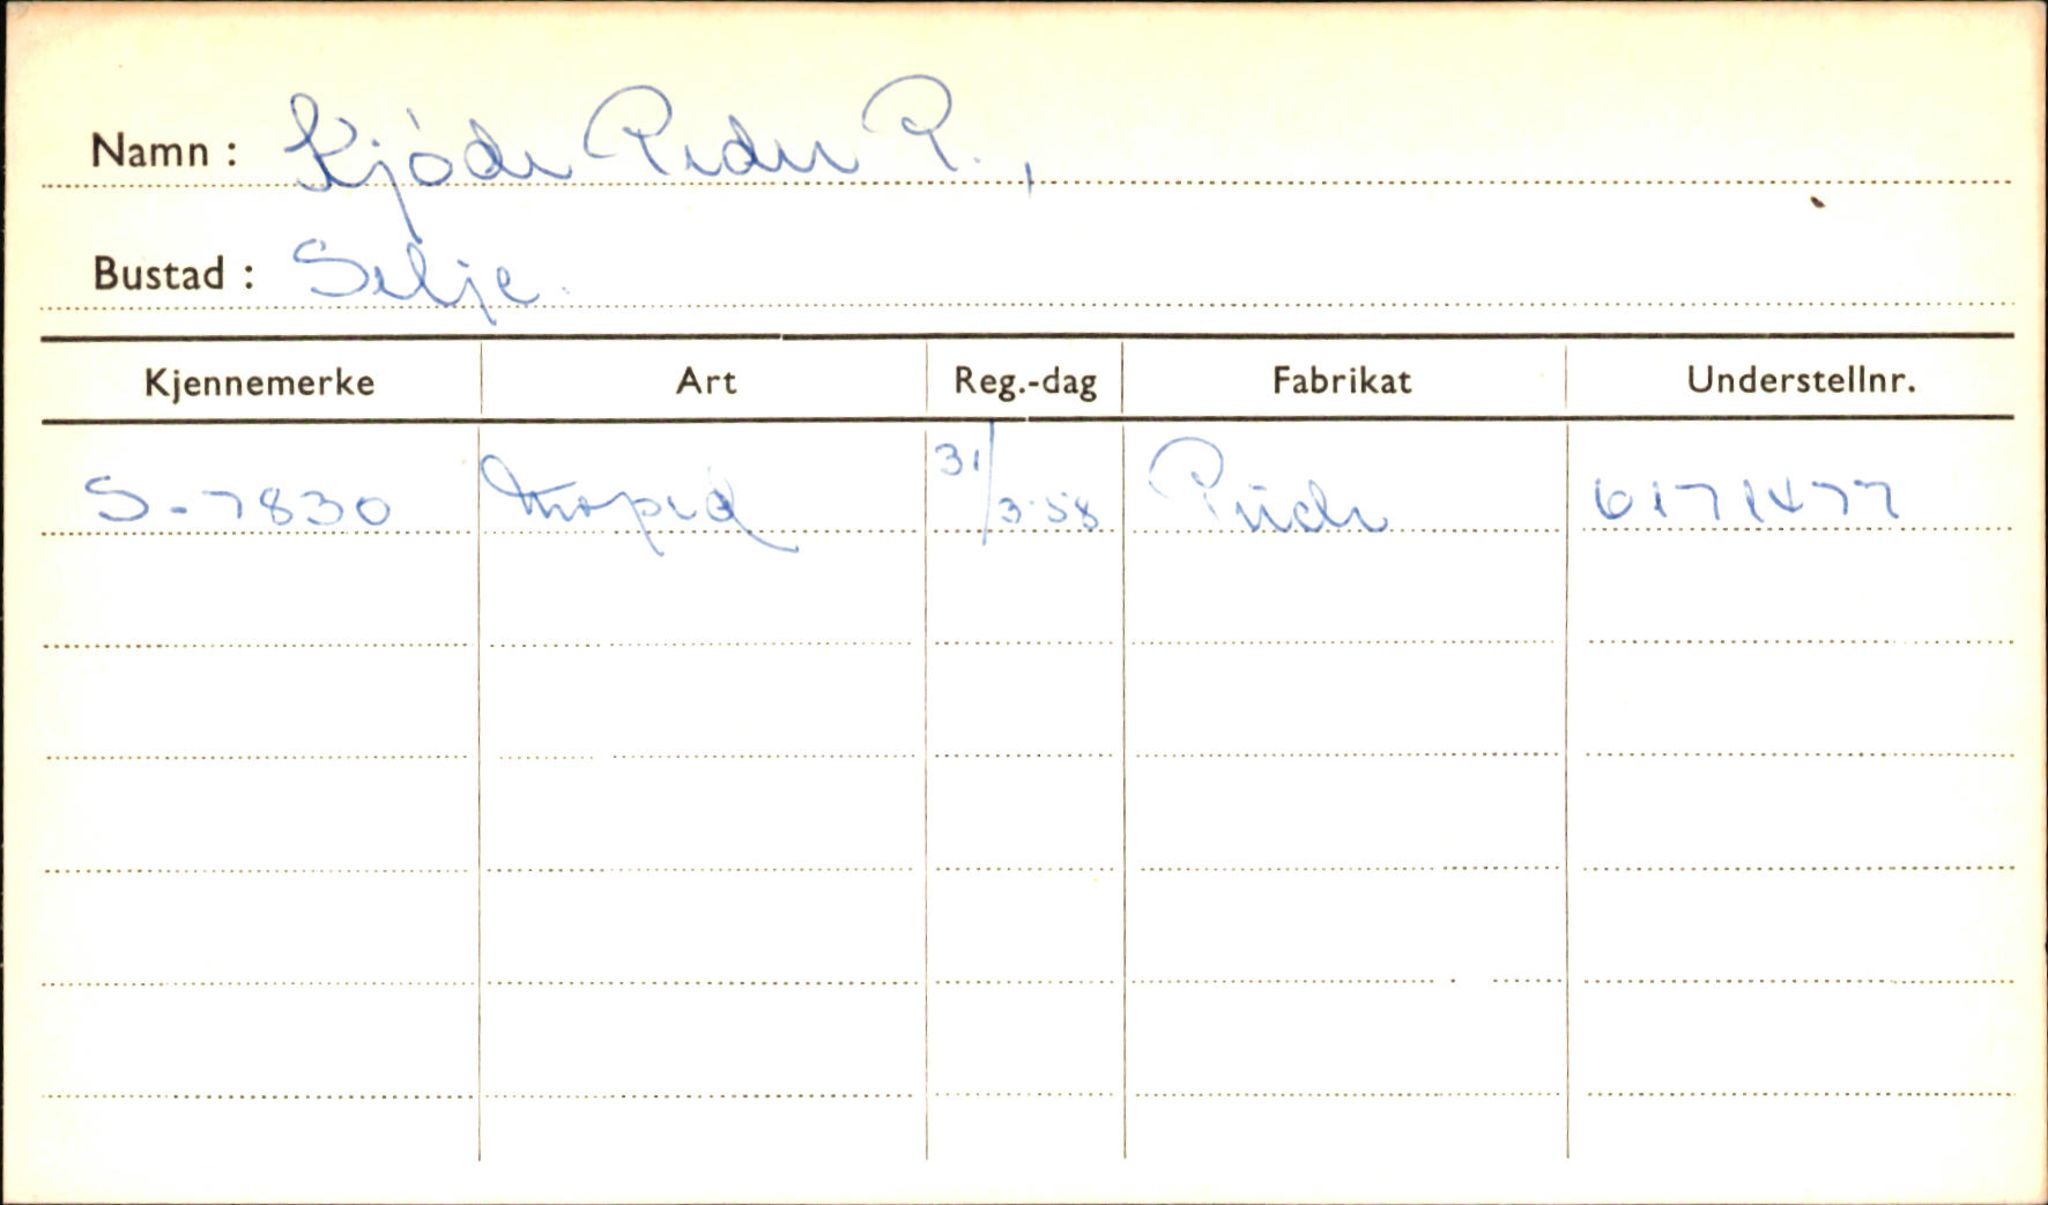 Namn : Kjøde Peder P.,
Bustad : Selje.
Kjennemerke Art Reg.-dag Fabrikat Understellnr.
S-7830 Moped 31/3-58 Püch 6171477